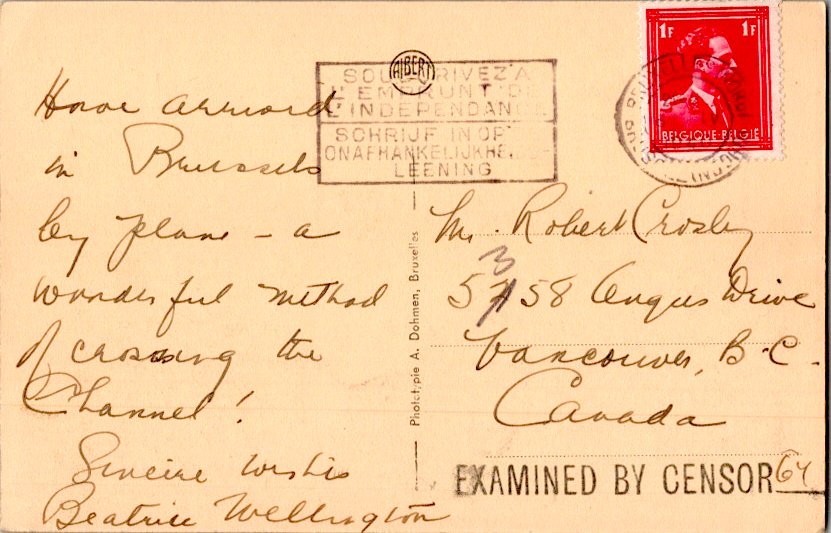 Have arrived
in Brussels
by plane – a
wonderful method
of crossing the
Channel!
Sincere wishes
Beatrice Wellington
ALBERT
SOUSCRIVEZ A
L'EMPRUNT DE
L'INDEPENDANCE
SCHRIJF IN OP
ONAFHANKELIJKHEIDS
LEENING
1F 1F
BELGIQUE-BELGIE
Phototypie A. Dohmen, Bruxelles
Mr. Robert Crosby
3
5758 Angus Drive
Vancouver, B.C.
Canada
EXAMINED BY CENSOR 64